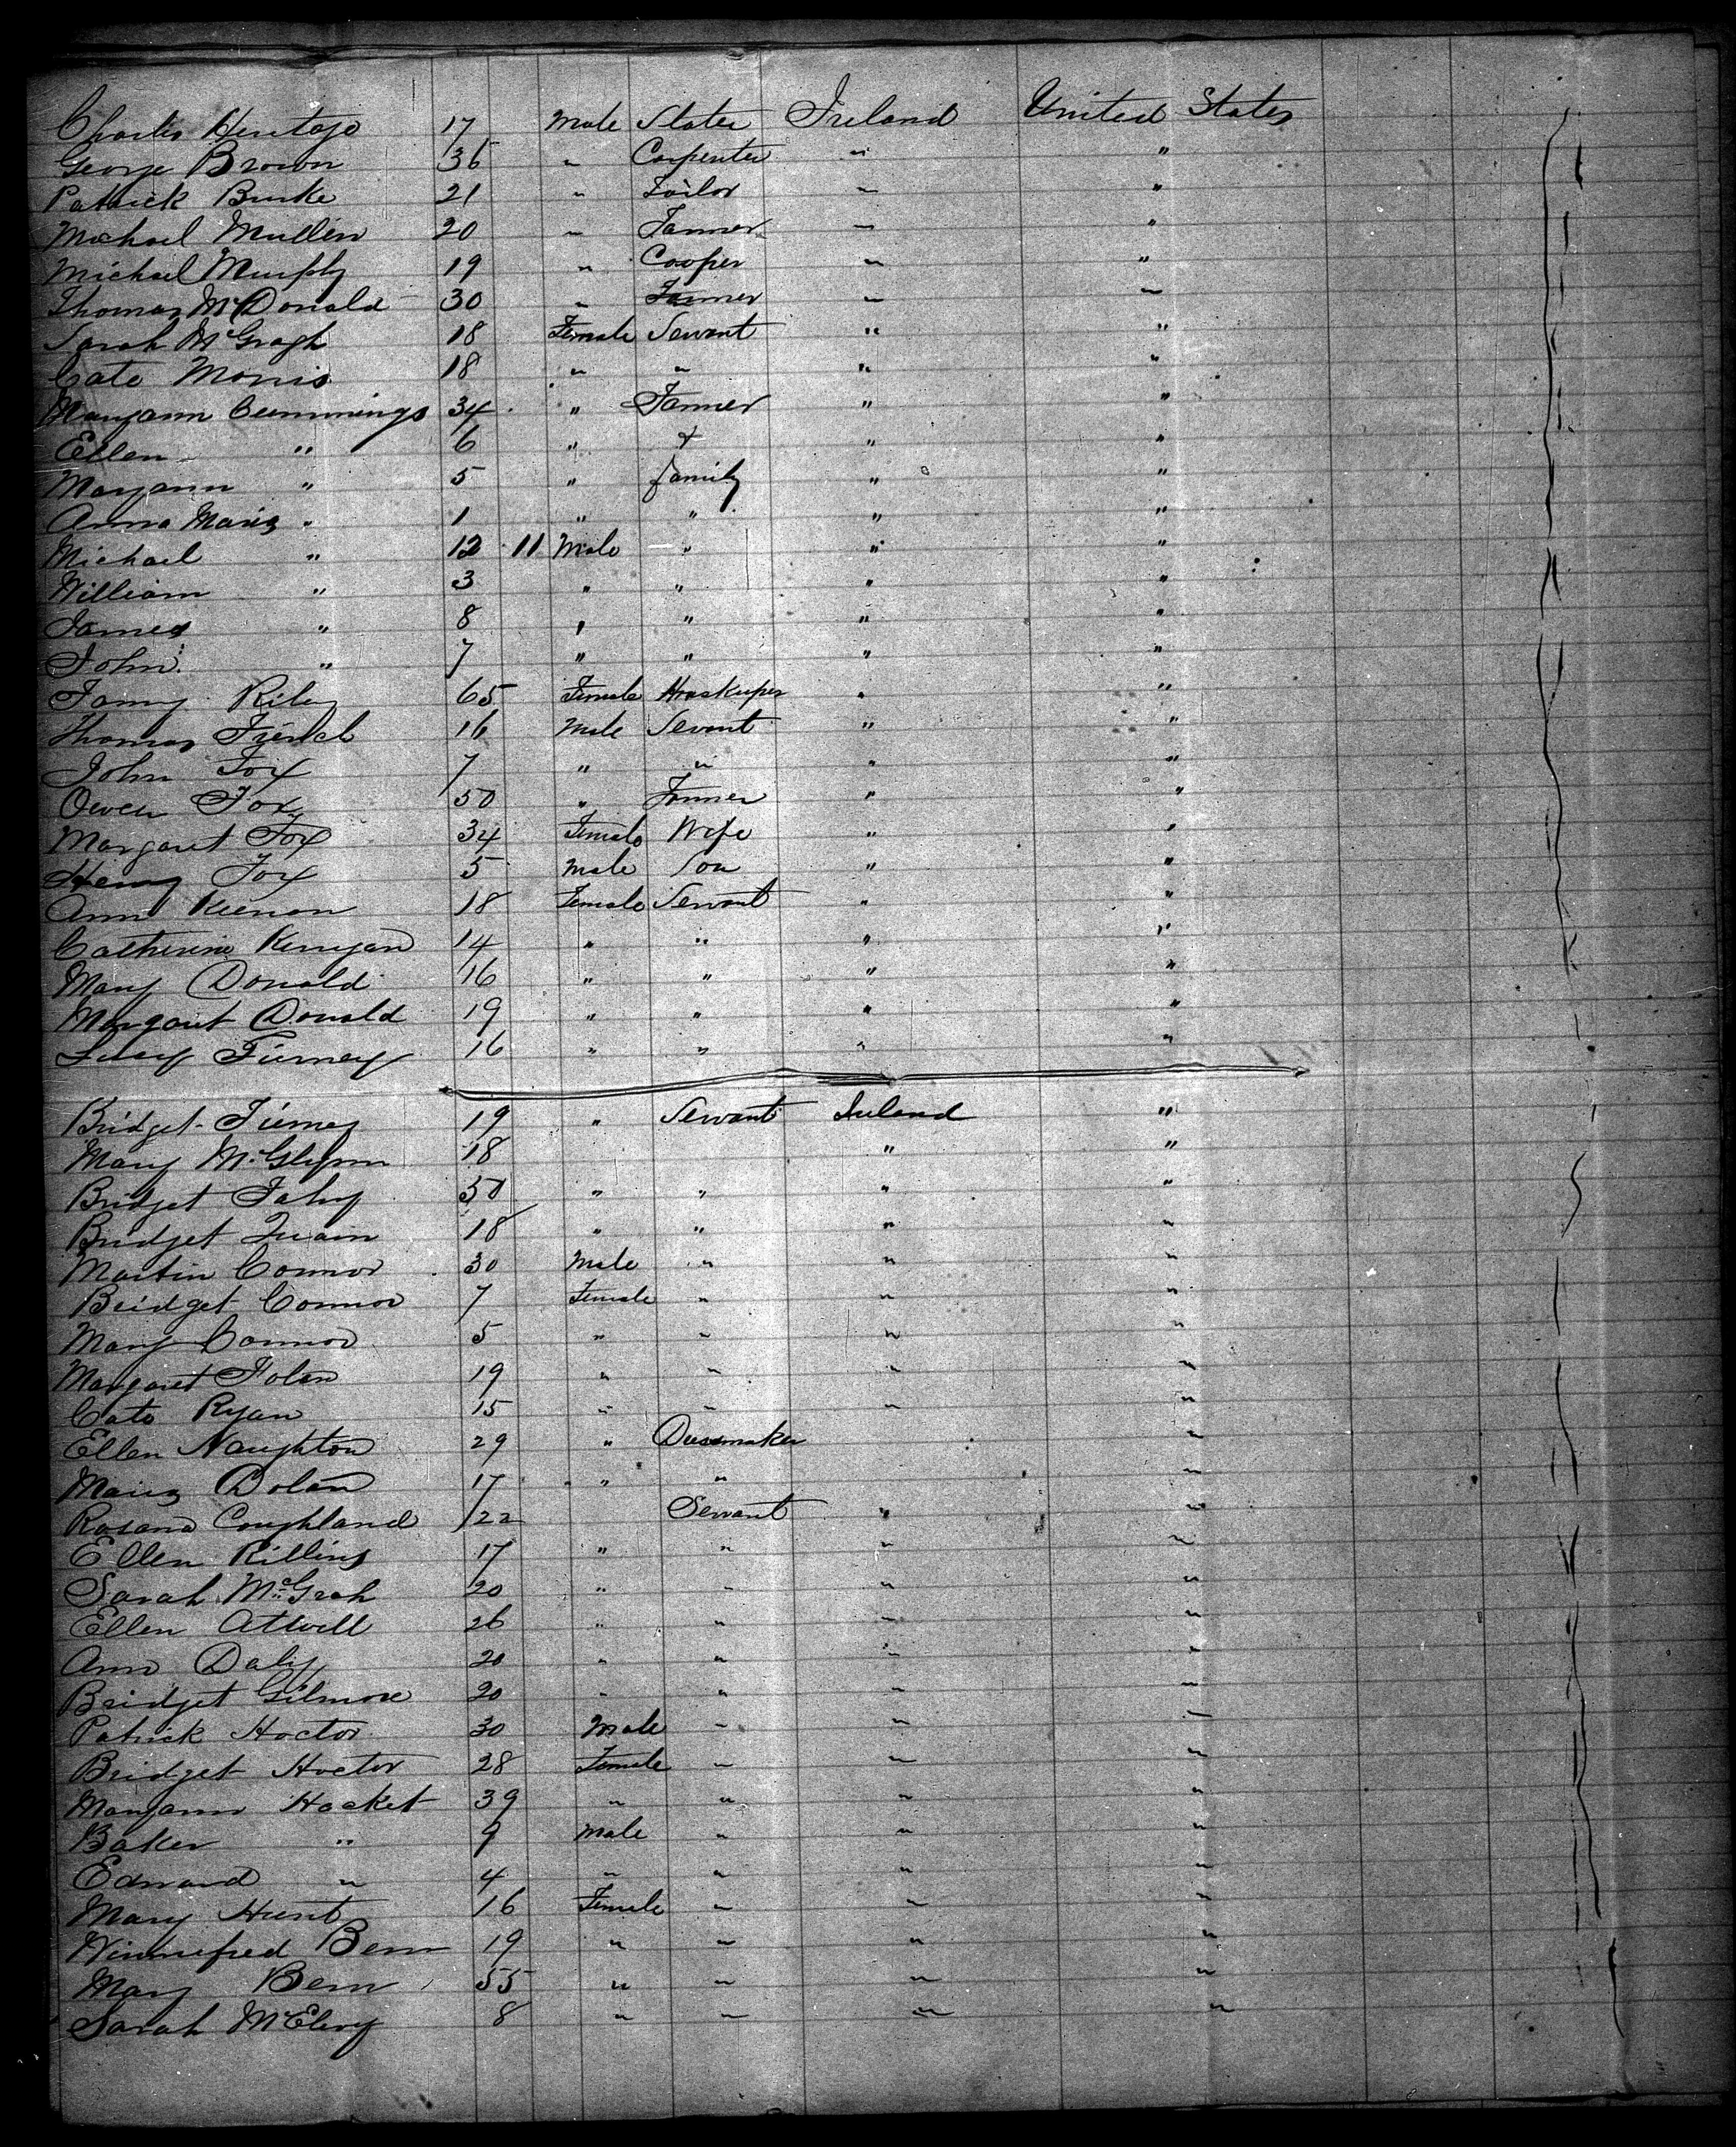 Charles Heritage 17 Male Slater Ireland United States
George Brown 36 " Carpenter " "
Patrick Burke 21 " Tailor " "
Michael Mullin 20 " Farmer " "
Michael Murphy 19 " Cooper " "
Thomas McDonald 30 " Farmer " "
Sarah McGragh 18 Female Servant " "
Cate Morris 18 " " " "
Maryann Cummings 34 " Farmer " "
Ellen " 6 " & " "
Maryann " 5 " family " "
Anna Maria " 1 " " " "
Michael " 12 11 Male " " "
William " 3 " " " "
James " 8 " " " "
John " 7 " " " "
Fanny Riley 65 Female Houskeeper " "
Thomas French 16 Male Servant " "
John Fox 7 " " " "
Owen Fox 50 " Farmer " "
Margaret Fox 34 Female Wife " "
Henry Fox 5 Male Son " "
Ann Keenan 18 Female Servant " "
Catherine Kerrigan 14 " " " "
Mary Donald 16 " " " "
Margaret Donald 19 " " " "
Lucy Tierney 16 " " " "
Bridget Tierney 19 " Servant Ireland "
Mary McGlynn 18 " "
Bridget Fahy 50 " " " "
Bridget Quain 18 " " " "
Martin Connor 30 Male " " "
Bridget Connor 7 Female " " "
Mary Connor 5 " " " "
Margaret Folan 19 " " " "
Cate Ryan 15 " " " "
Ellen Naughton 29 " Dressmaker "
Maria Dolan 17 " " "
Rosana Coughland 22 Servant " "
Ellen Killins 17 " " " "
Sarah McGrah 20 " " " "
Ellen Attwell 26 " " " "
Ann Daly 20 " " " "
Bridget Gilmore 20 " " " "
Patrick Hoctor 30 Male " " "
Bridget Hoctor 28 Female " " "
Maryann Hacket 39 " " " "
Baker " 9 Male " " "
Edward " 4 " " " "
Mary Hunt 16 Female " " "
Winnefred Bern 19 " " " "
Mary Bern 55 " " " "
Sarah McElroy 8 " " " "